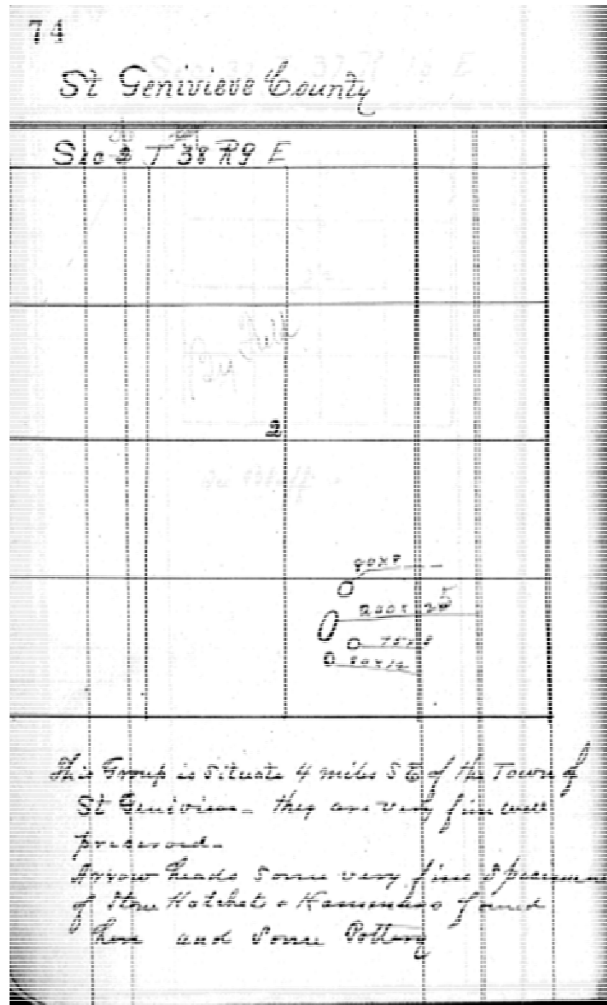 74
St Genivieve County
Sec 2 T 38 R9 E
2
90x8
200x 25
75x8
80x12
This Group is Situate 4 miles SE of the Town of
St Genivieve - they are very fine well
preserved -
Arrow heads Some very fine Specimens
of Stone Hatchets + Hammers found
here and Some Pottery